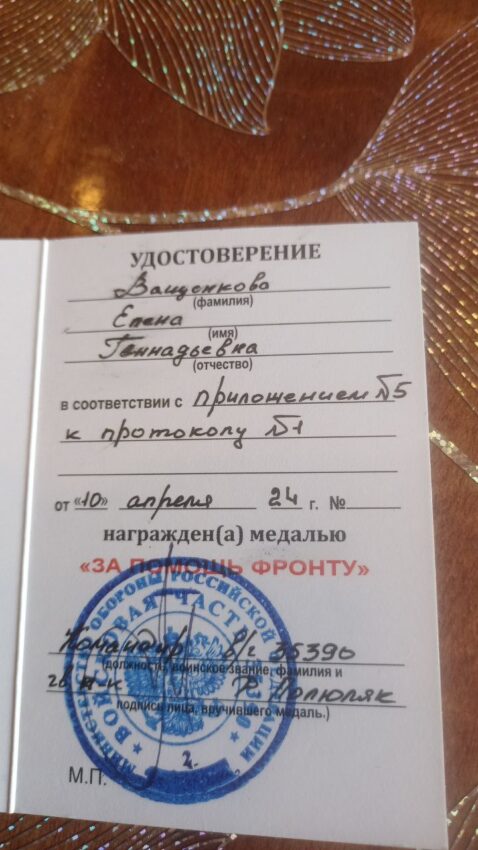 УДОСТОВЕРЕНИЕ
Ващенкова
(фамилия)
Елена
(имя)
Геннадьевна
(отчество)
в соответствии с приложением №5
к протоколу №1
от «10» апреля 24 г. №
награжден(а) медалью
«ЗА ПОМОЩЬ ФРОНТУ»
Командир в/ч 35390
(должность, воинское звание, фамилия и
подпись лица, вручившего медаль.)
М.П.
МИНИСТЕРСТВО ОБОРОНЫ РОССИЙСКОЙ ФЕДЕРАЦИИ
ВОЙСКОВАЯ ЧАСТЬ 35390
2.